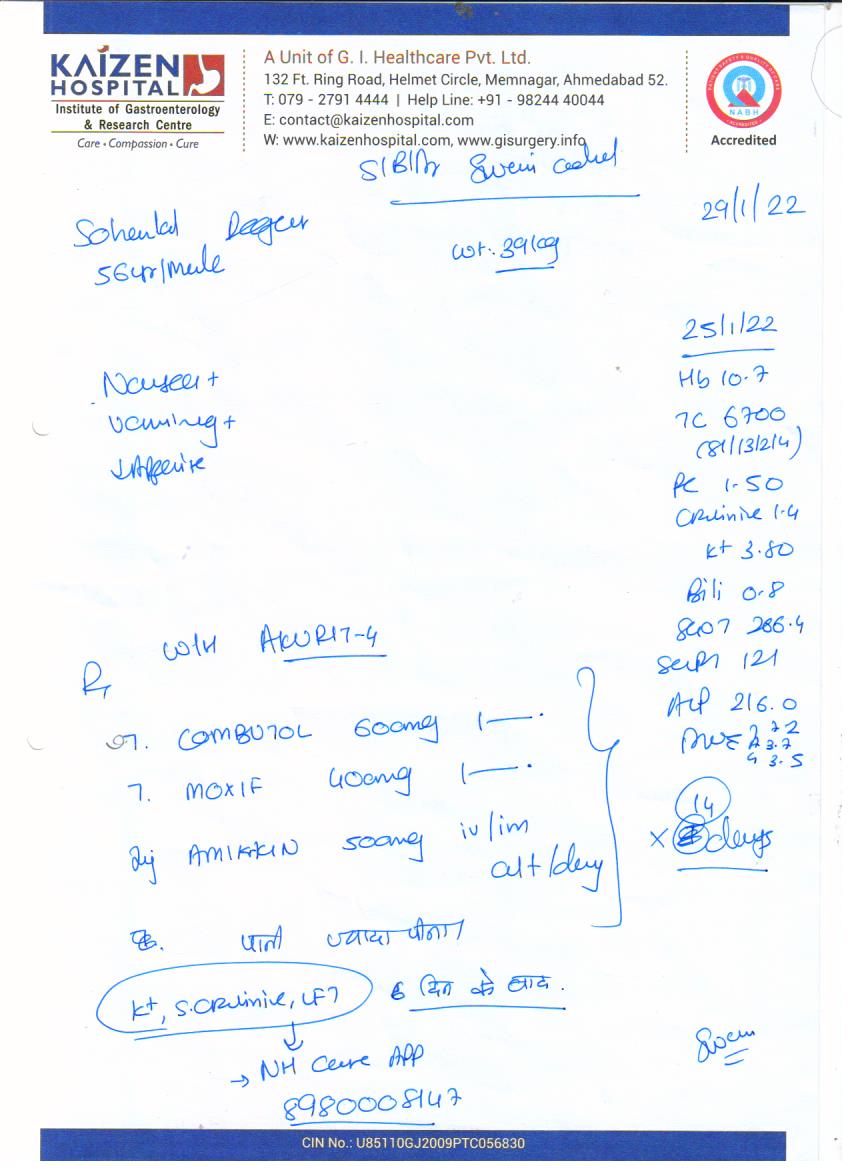 KAIZEN
HOSPITAL
Institute of Gastroenterology
& Research Centre
Care • Compassion • Cure
A Unit of G. I. Healthcare Pvt. Ltd.
132 Ft. Ring Road, Helmet Circle, Memnagar, Ahmedabad 52.
T: 079 - 2791 4444 | Help Line: +91 - 98244 40044
E: contact@kaizenhospital.com
W: www.kaizenhospital.com, www.gisurgery.info
PATIENT SAFETY & QUALITY OF CARE
NABH
ACCREDITED
Accredited
S/B/Dr
29/1/22
Sohenlal
56yr/Male
wt. 39kg
25/1/22
Hb 10.7
TC 6700
(81/13/2/4)
PC 1.50
Creatinine 1.4
K+ 3.80
Bili 0.8
SGOT 266.4
SGPT 121
ALP 216.0
7.2
A 3.7
G 3.5
Nausea +
Vomiting +
↓Appetite
W/H AKURIT-4
Rx
T. COMBUTOL 600mg 1—·
T. MOXIF 400mg 1—·
Inj AMIKKIN 500mg iv/im
alt/day
× 14 days
पानी ज्यादा पीना।
K+, S.Creatinine, LFT
6 दिन के बाद.
→ NH Care APP
8980008147
CIN No.: U85110GJ2009PTC056830